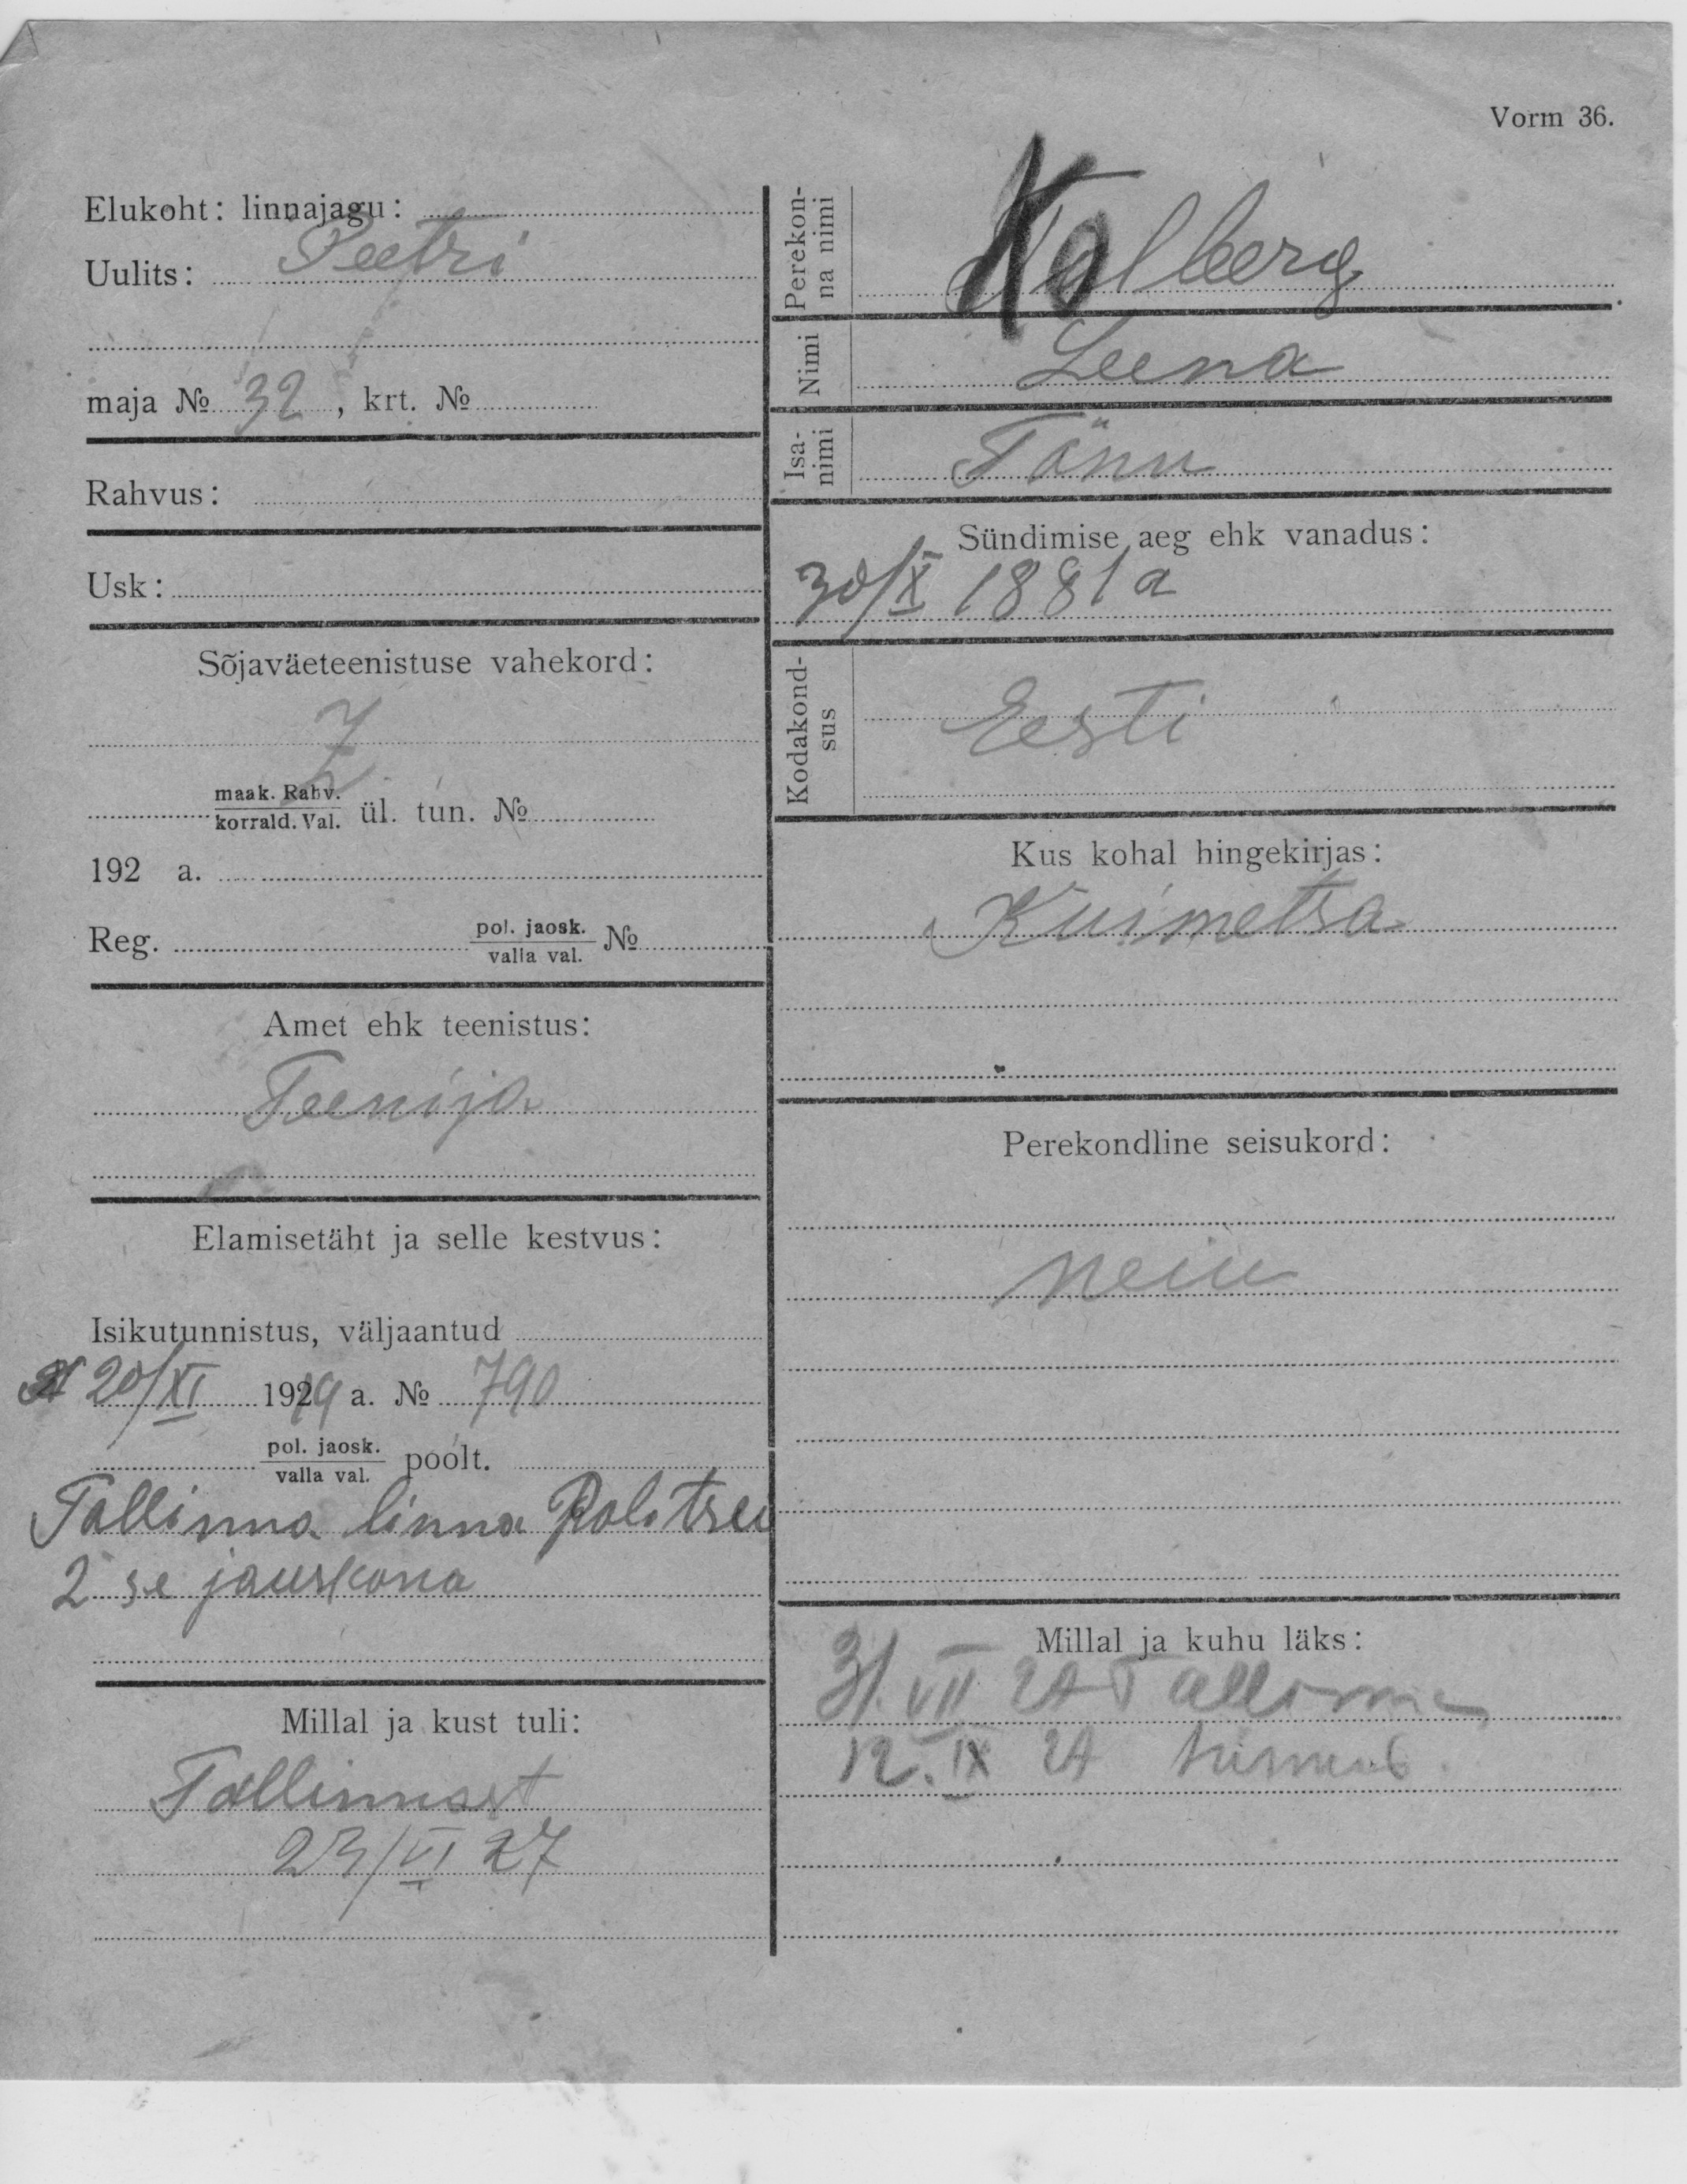 Vorm 36.
Elukoht: linnajagu:
Uulits: Peetri
maja № 32, krt. №
Rahvus:
Usk:
Sõjaväeteenistuse vahekord:
Z
maak. Rahv.
korrald. Val. ül. tun. №
192 a.
Reg. pol. jaosk. №
valla val.
Amet ehk teenistus:
Teenija
Elamisetäht ja selle kestvus:
Isikutunnistus, väljaantud
20/XI 1919 a. № 790
pol. jaosk.
valla val. poolt.
Tallinna linna Politsei
2 se jauskona
Millal ja kust tuli:
Tallinnast
23/VI 27
Perekonna nimi Kolberg
Nimi Leena
Isanimi Tõnu
Sündimise aeg ehk vanadus:
30/X 1881 a
Kodakondsus Eesti
Kus kohal hingekirjas:
Kuimetsa
Perekondline seisukord:
neiu
Millal ja kuhu läks:
31. VII 27 Tallinna
12. IX 27